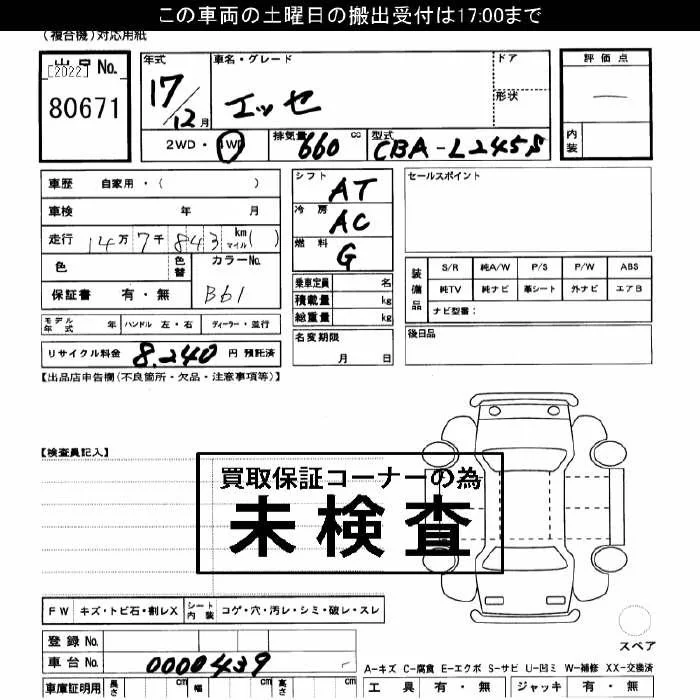 この車両の土曜日の搬出受付は17:00まで
(複合機)対応用紙
[2022] No.
80671
年式
17/12月
車名・グレード
エッセ
ドア
形状
評価点
—
内装
2WD・4WD
排気量 660 cc
型式 CBA-L245S
車歴 自家用・( )
車検 年 月
走行 14万7千843 km マイル( )
色 色替 カラーNo.
B61
保証書 有・無
シフト AT
冷房 AC
燃料 G
セールスポイント
乗車定員 名
積載量 kg
総重量 kg
装備品
S/R 純A/W P/S P/W ABS
純TV 純ナビ 革シート 外ナビ エアB
ナビ型番:
モデル年式 年 ハンドル 左・右 ディーラー・並行
名変期限
月 日
後日品
リサイクル料金 8,240 円 預託済
【出品店申告欄(不良箇所・欠品・注意事項等)】
【検査員記入】
買取保証コーナーの為
未検査
FW キズ・トビ石・割レX シート内装 コゲ・穴・汚レ・シミ・破レ・スレ
登録No.
車台No. 0000439
スペア
A-キズ C-腐食 E-エクボ S-サビ U-凹ミ W-補修 XX-交換済
車庫証明用 長さ cm 幅 cm 高さ cm
工具 有・無 ジャッキ 有・無